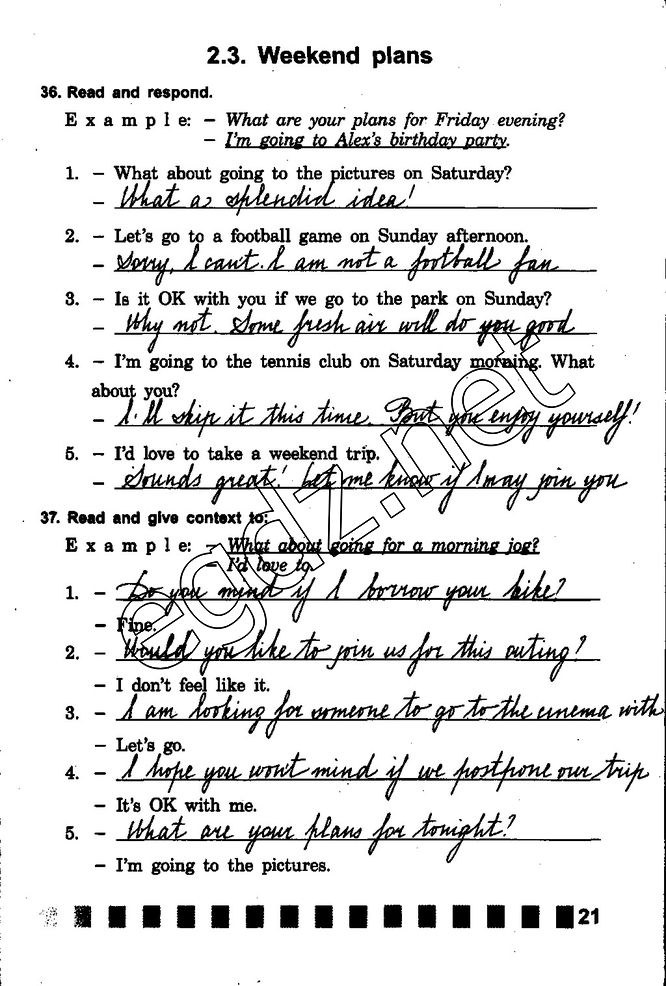 2.3. Weekend plans
36. Read and respond.
Example: – What are your plans for Friday evening?
– I'm going to Alex's birthday party.
1. – What about going to the pictures on Saturday?
– What a splendid idea!
2. – Let's go to a football game on Sunday afternoon.
– Sorry, I can't. I am not a football fan
3. – Is it OK with you if we go to the park on Sunday?
– Why not. Some fresh air will do you good
4. – I'm going to the tennis club on Saturday morning. What
about you?
– I'll skip it this time. But you enjoy yourself!
5. – I'd love to take a weekend trip.
– Sounds great! Let me know if I may join you
37. Read and give context to:
Example: – What about going for a morning jog?
– I'd love to.
1. – Do you mind if I borrow your bike?
– Fine.
2. – Would you like to join us for this outing?
– I don't feel like it.
3. – I am looking for someone to go to the cinema with
– Let's go.
4. – I hope you won't mind if we postpone our trip
– It's OK with me.
5. – What are your plans for tonight?
– I'm going to the pictures.
21
egdz.net